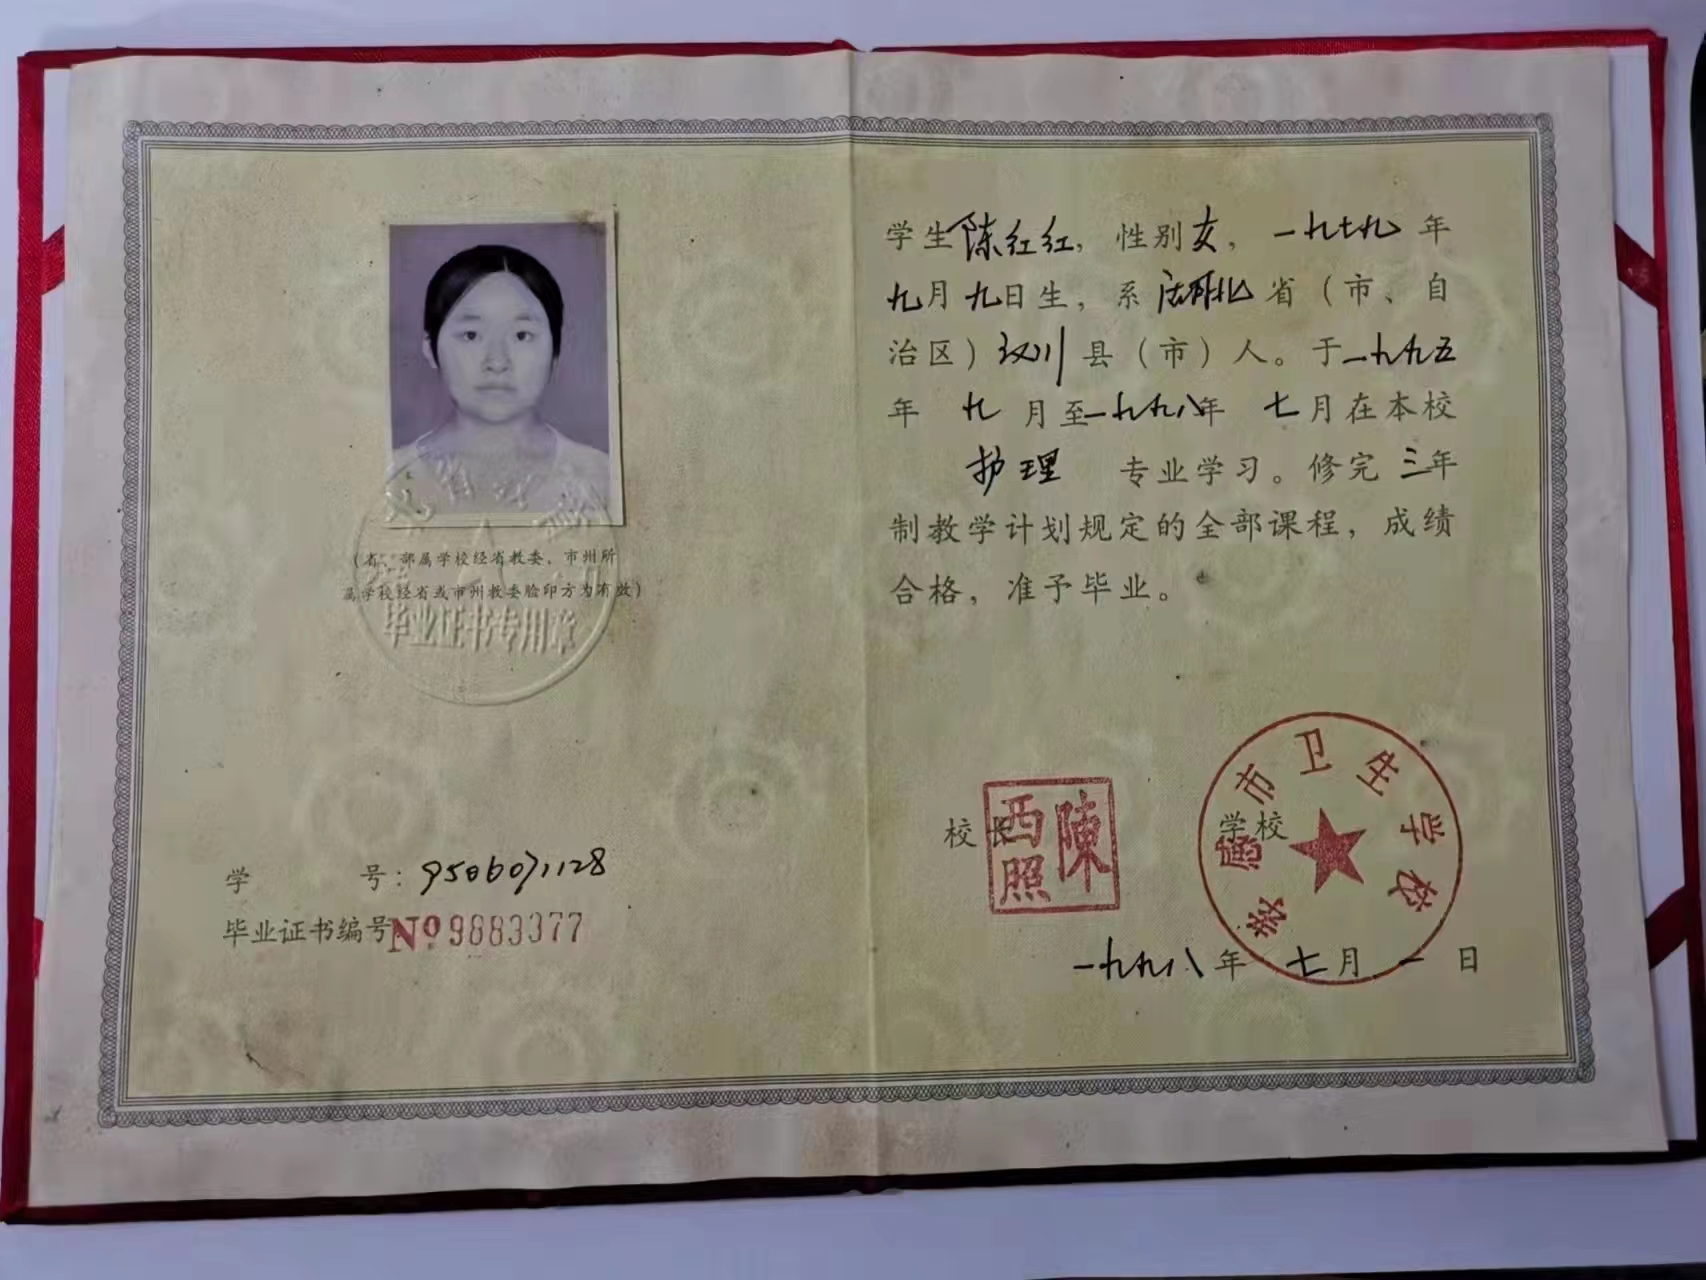 (省、部属学校经省教委、市州所
属学校经省或市州教委验印方为有效)
毕业证书专用章
学 号: 9506071128
毕业证书编号 No 9883377
学生陈红红, 性别女, 一九七九年
九月九日生, 系湖北省(市、自
治区)汉川县(市)人。于一九九五
年 九 月至一九九八年 七月在本校
护理 专业学习。修完三年
制教学计划规定的全部课程, 成绩
合格, 准予毕业。
校长 陳西照
学校
孝感市卫生学校
一九九八年 七月 一 日